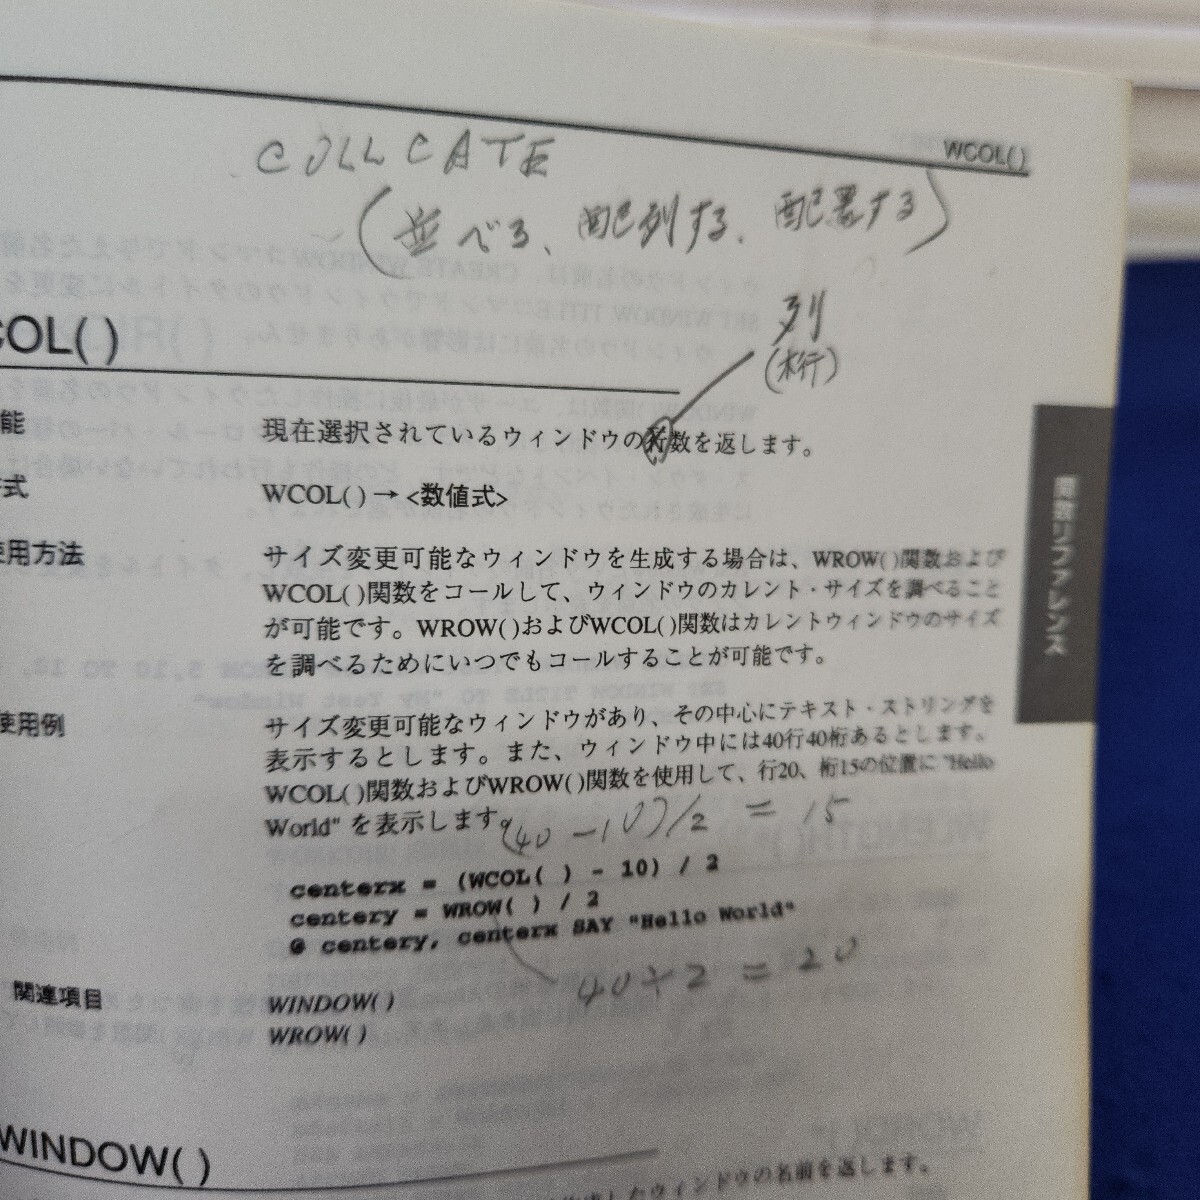 WCOL()
COLLCATE
(並べる、配列する、配置する)
列
(桁)
COL( )
能
現在選択されているウィンドウの行数を返します。
式
WCOL( ) → <数値式>
使用方法
サイズ変更可能なウィンドウを生成する場合は、WROW( )関数および
WCOL( )関数をコールして、ウィンドウのカレント・サイズを調べること
が可能です。WROW( )およびWCOL( )関数はカレントウィンドウのサイズ
を調べるためにいつでもコールすることが可能です。
使用例
サイズ変更可能なウィンドウがあり、その中心にテキスト・ストリングを
表示するとします。また、ウィンドウ中には40行40桁あるとします。
WCOL( )関数およびWROW( )関数を使用して、行20、桁15の位置に "Hello
World" を表示します。
(40-10)/2 = 15
centerx = (WCOL( ) - 10) / 2
centery = WROW( ) / 2
@ centery, centerx SAY "Hello World"
40÷2 = 20
関連項目
WINDOW( )
WROW( )
関数リファレンス
WINDOW( )
したウィンドウの名前を返します。